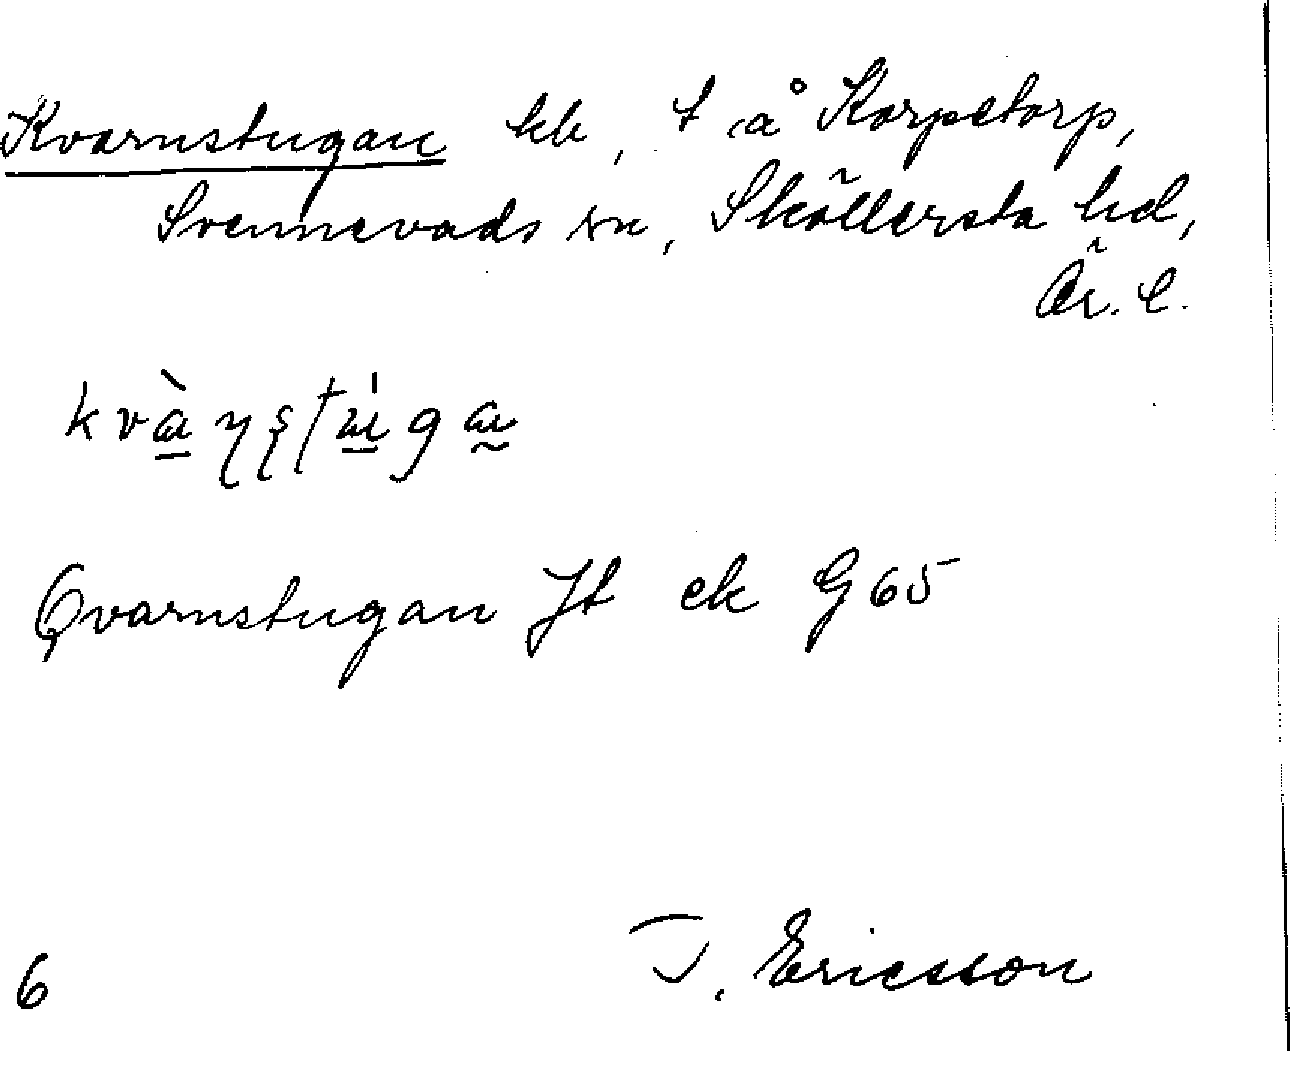 Kvarnstugan hh, t å Korpetorp,
Svennevads sn, Sköllersta hd,
Ör. l.
Qvarnstugan Jt ek G65
6 J. Ericsson